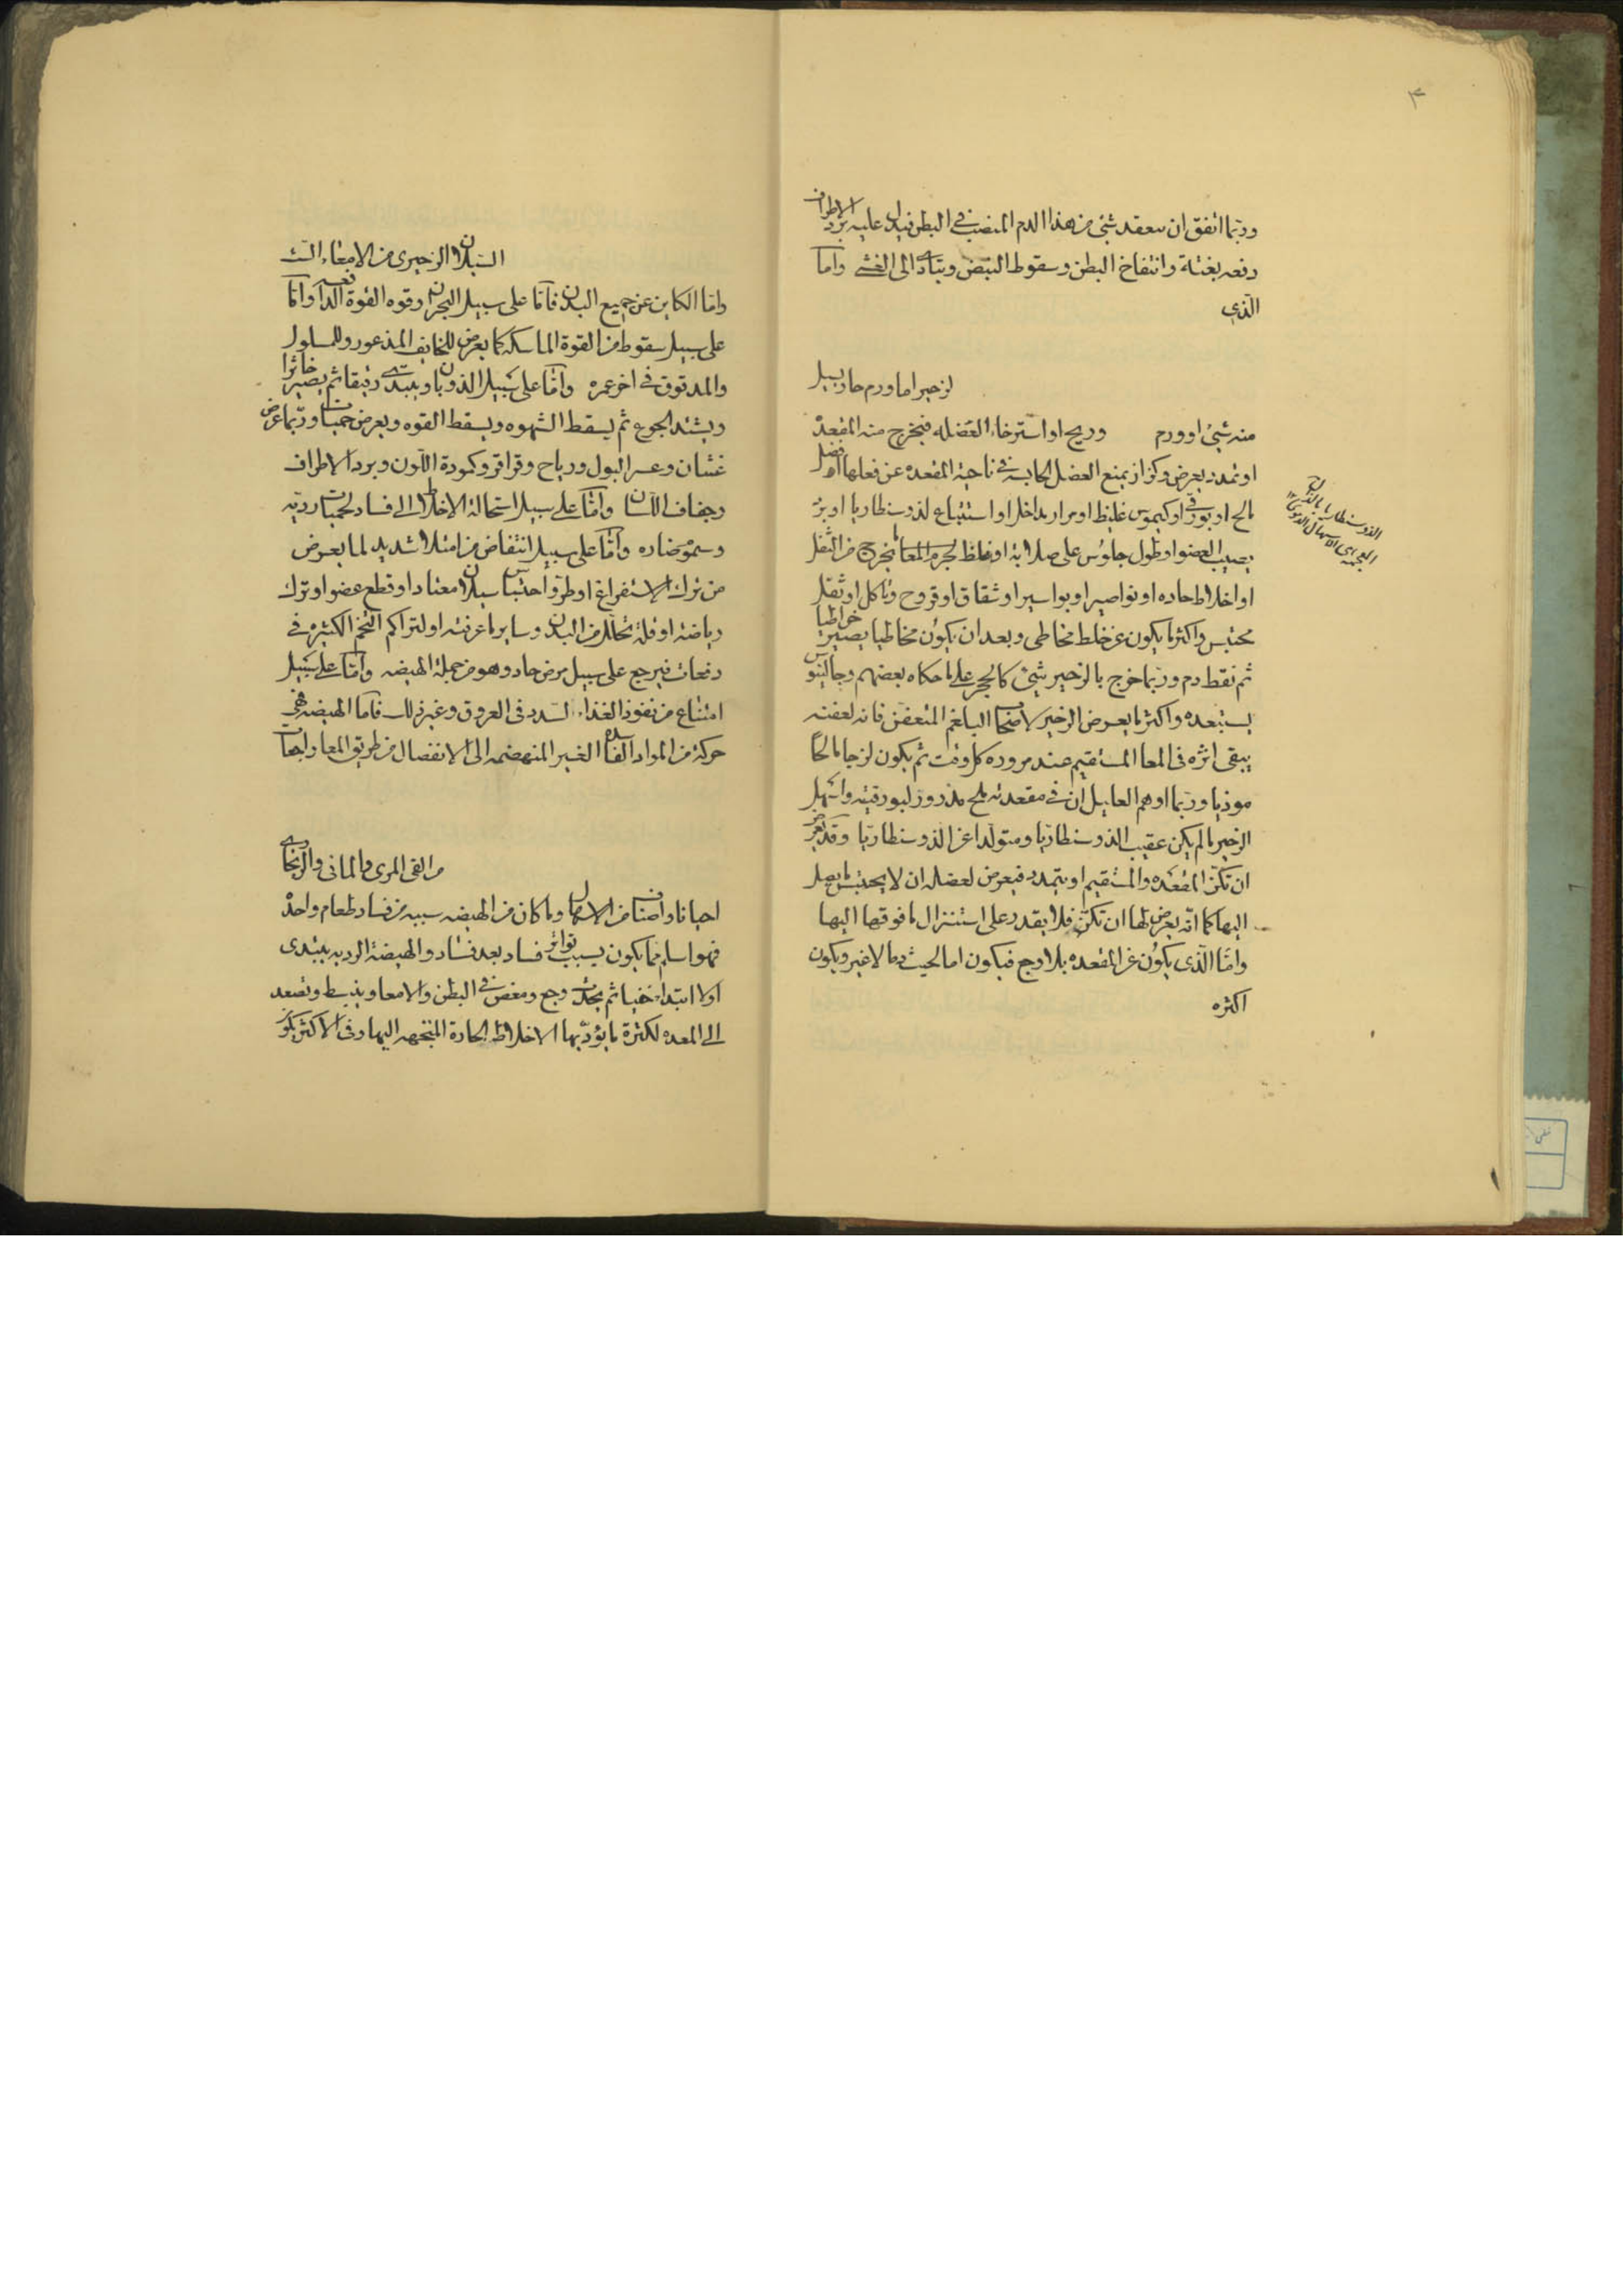 ٣
وربما اتفق ان ينعقد شئ من هذا الدم المنصب في البطن فيدل عليه برد الاطراف
دفعه بغتة وانتفاخ البطن وسقوط النبض ويتادى الى الغشى واما
الذي
لزحير اما ورم حار يسيل
منه شئ او ورم وريح او استرخاء العضله فيخرج منه المقعدة
او تمدد يعرض وكزاز يمنع العضل الحابسه في ناحية المقعده عن فعلها او فضل
مالح او بورقي او كيموس غليظ او مرار مداخل او استتباع لذوسنطاريا او برد
يصيب العضو او طول جلوس على صلابة او غلظ لجرم المعا يخرج من الثقل
او اخلاط حاده او نواصير او بواسير او شقاق او قروح وتاكل او ثقل
محتبس واكثر ما يكون عن خلط مخاطي وبعد ان يكون مخاطيا يصير خراطيا
ثم نقط دم وربما خرج بالزحير شئ كالحجر على ما حكاه بعضهم وجالينوس
يستبعده واكثر ما يعرض الزحير لاصحاب البلغم المتعفن فانه لعفنته
يبقى اثره في المعا المستقيم عند مروره كل وقت ثم يكون لزجا مالحا
موذيا وربما اوهم العليل ان في مقعدته ملح مذرور لبورقيته واسهل
الزحير ما لم يكن عقيب الذوسنطاريا ومتولدا عن الذوسنطاريا وقد يعرض
ان تكن المقعده والمستقيم او يتمدد فيعرض لعضله ان لا يحتبس ما يصل
اليها كما انه يعرض لها ان تكن فلا يقدر على استنزال ما فوقها اليها
واما الذي يكون عن المقعده بلا وجع فيكون اما لحيث دما لا غير ويكون
اكثره
الذوسنطاريا بالذال
المعجمه اى الاسهال الدموى
السيلان الزحيرى من الامعاء الت
واما الكاين عن جميع البدن فاما على سبيل البحران وقوه القوة الدافعه واما
على سبيل سقوط من القوة الماسكه كما يعرض للخايف المذعور وللمسلول
والمدقوق في اخر عمره واما على سبيل الذوبان ويبتدى رقيقا ثم يصير خاثرا
ويشتد الجوع ثم يسقط الشهوه ويسقط القوه ويعرض حميات وربما عرض
غشيان وعسر البول ورياح وقراقر وكمودة اللون وبرد الاطراف
وجفاف اللسان واما على سبيل استحالة الاخلاط الى فساد لحميات رديه
وسموم ضاره واما على سبيل انتفاض من امتلاء شديد لما يعرض
من ترك الاستفراغ او طرو احتباس سيلان معتاد او قطع عضو او ترك
رياضه او قلة تحلل من البدن وساير ما عرفته او لتراكم التخم الكثيره في
دفعات فيرجع على سبيل مرض حاد وهو من جملة الهيضه واما على سبيل
امتناع من نفوذ الغذاء لسدد في العروق وغير ذلك فاما الهيضه فهي
حركة من المواد الفاسده الغير المنهضمه الى الانفصال من طريق المعا راجعات
من القى المرى والمائى والزنجارى
احيانا واصناف من الاسهال وما كان من الهيضه سببه من فساد طعام واحد
فهو اسلم مما يكون بسبب تواتر فساد بعد فساد والهيضة الرديه يبتدى
اولا ابتداء خفيا ثم يحدث وجع ومغص في البطن والامعا وينبسط وتصعد
الى المعده لكثرة ما يؤديها الاخلاط الحادة المتجهه اليها وفي الاكثر يكون